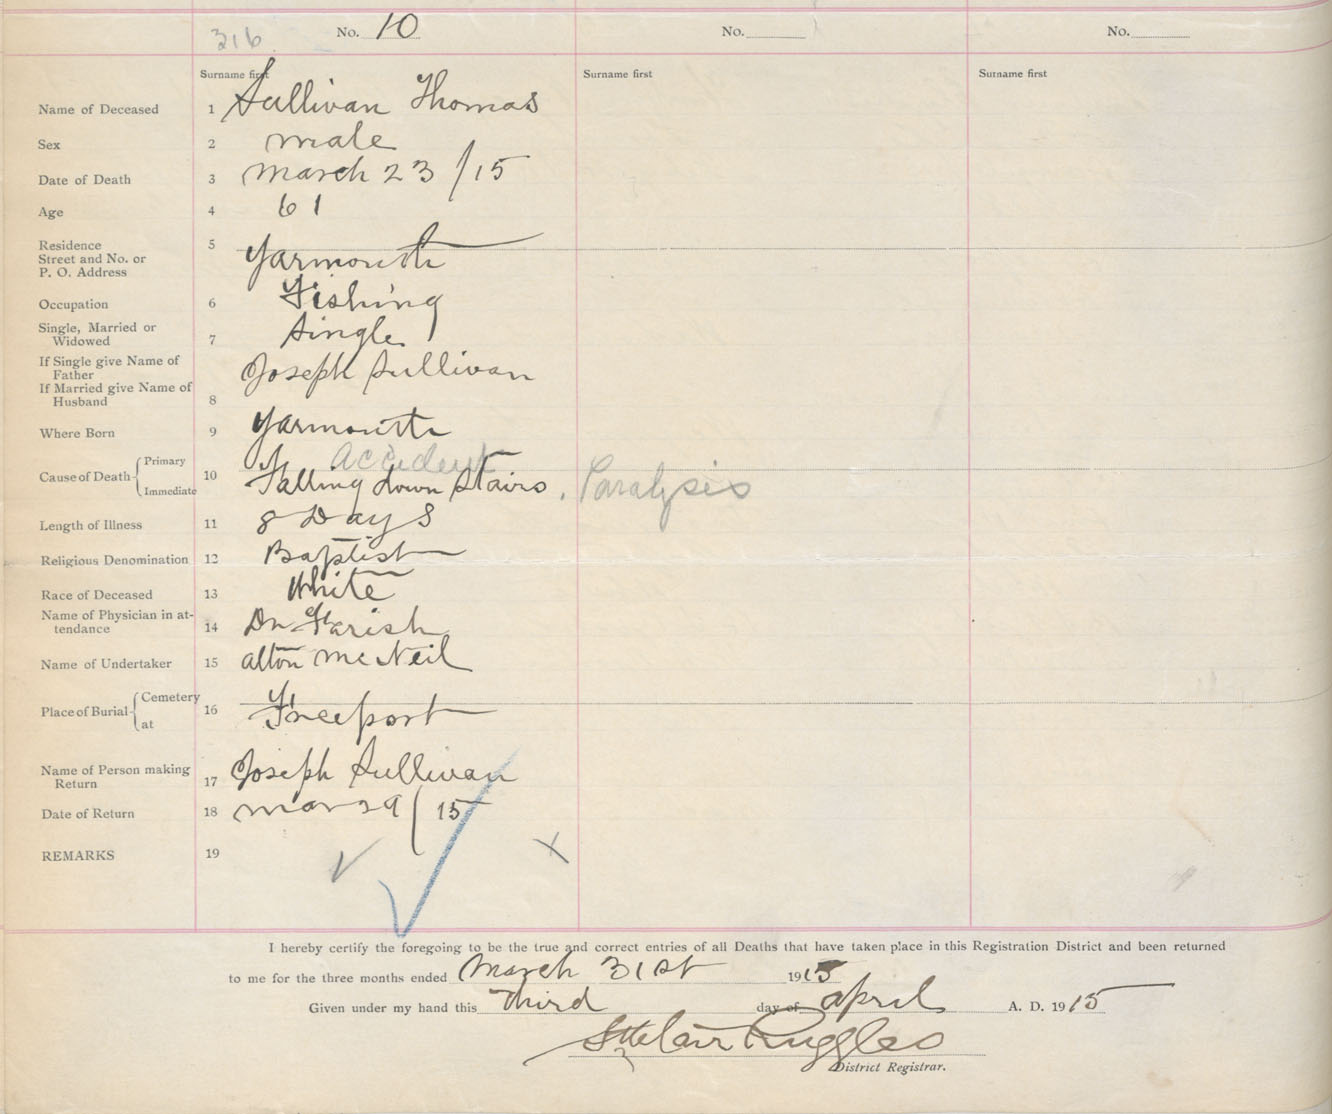 316
No. 10 No. No.
Surname first Surname first Surname first
Name of Deceased 1 Sullivan Thomas
Sex 2 male
Date of Death 3 March 23 / 15
Age 4 61
Residence
Street and No. or
P. O. Address 5 Yarmouth
Occupation 6 Fishing
Single, Married or
Widowed 7 Single
If Single give Name of
Father
If Married give Name of
Husband 8 Joseph Sullivan
Where Born 9 Yarmouth
Accident
Cause of Death Primary Immediate 10 Falling down Stairs. Paralysis
Length of Illness 11 8 Days
Religious Denomination 12 Baptist
Race of Deceased 13 White
Name of Physician in at-
tendance 14 Dr Farish
Name of Undertaker 15 Alton McNeil
Place of Burial Cemetery at 16 Freeport
Name of Person making
Return 17 Joseph Sullivan
Date of Return 18 Mar 29 / 15
REMARKS 19
I hereby certify the foregoing to be the true and correct entries of all Deaths that have taken place in this Registration District and been returned
to me for the three months ended March 31st 1915
Given under my hand this Third day of April A. D. 1915
Ruggles
District Registrar.